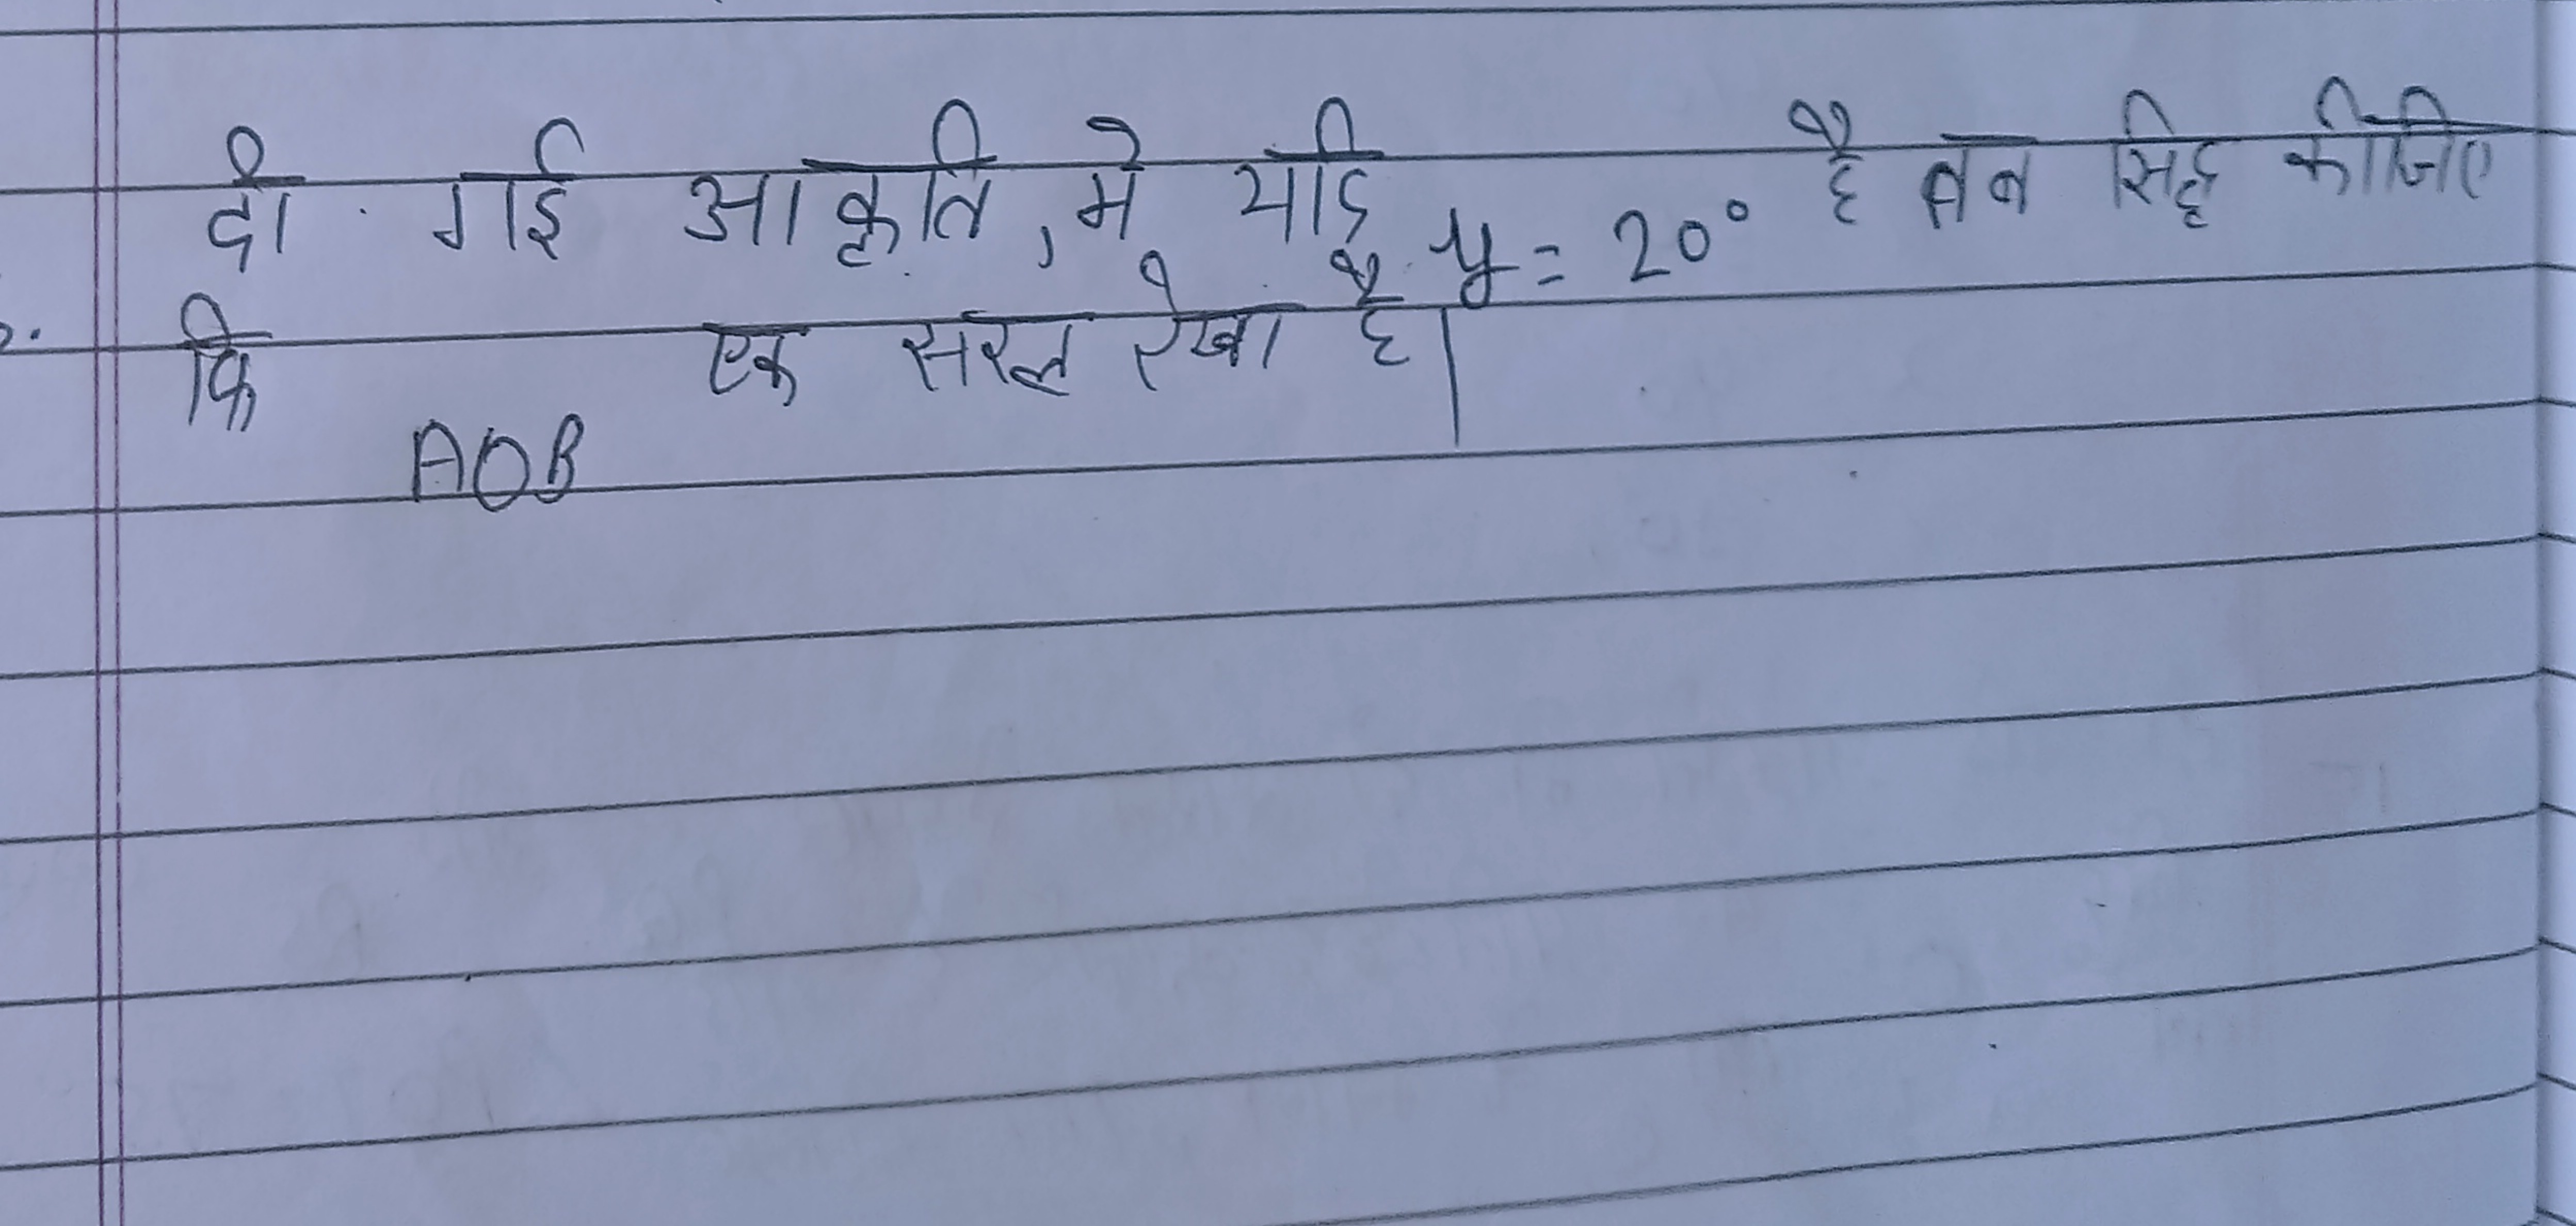 दी गई आकृति, में यदि y = 20° है तब सिद्द कीजिए
कि AOB एक सरल रेखा है|